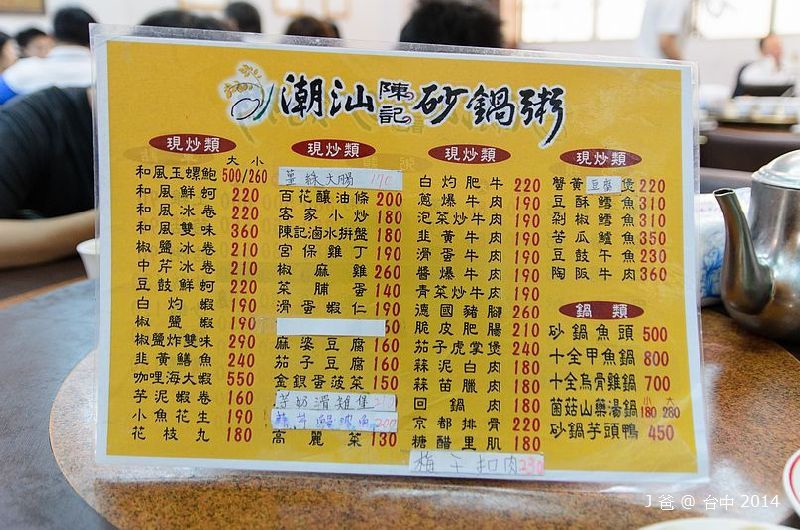 潮汕陳記砂鍋粥
現炒類
大 小
和風玉螺鮑 500/260
和風鮮蚵 220
和風冰卷 220
和風雙味 360
椒鹽冰卷 210
中芹冰卷 210
豆鼓鮮蚵 220
白灼蝦 190
椒鹽蝦 190
椒鹽炸雙味 290
韭黃鱔魚 240
咖哩海大蝦 550
芋泥蝦卷 160
小魚花生 190
花枝丸 180
現炒類
薑絲大腸 190
百花釀油條 200
客家小炒 180
陳記滷水拼盤 180
宮保雞丁 190
椒麻雞 260
菜脯蛋 140
滑蛋蝦仁 190
60
麻婆豆腐 160
茄子豆腐 160
金銀蛋菠菜 150
滑雞堡
200
高麗菜 130
現炒類
白灼肥牛 220
蔥爆牛肉 190
泡菜炒牛肉 190
韭黃牛肉 190
滑蛋牛肉 190
醬爆牛肉 190
青菜炒牛肉 190
德國豬腳 260
脆皮肥腸 210
茄子虎掌煲 240
蒜泥白肉 180
蒜苗臘肉 180
回鍋肉 180
京都排骨 220
糖醋里肌 180
梅干扣肉 230
現炒類
蟹黃豆腐煲 220
豆酥鱈魚 310
剁椒鱈魚 310
苦瓜鱸魚 350
豆鼓午魚 230
陶阪牛肉 360
鍋類
砂鍋魚頭 500
十全甲魚鍋 800
十全烏骨雞鍋 700
小 大
菌菇山藥湯鍋 180 280
砂鍋芋頭鴨 450
J 爸 @ 台中 2014